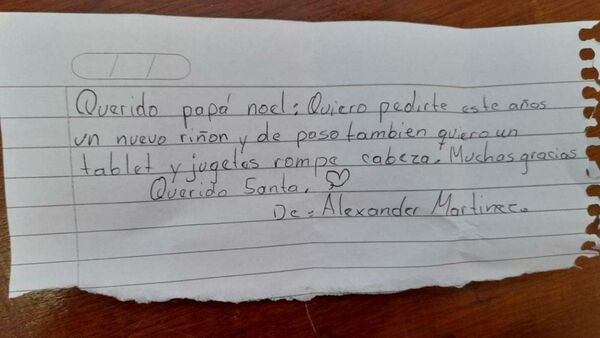 Querido papá noel: Quiero pedirte este años
un nuevo riñon y de paso tambien quiero un
tablet y jugetes rompe cabeza. Muchas gracias
Querido Santa.
De: Alexander Martinez.